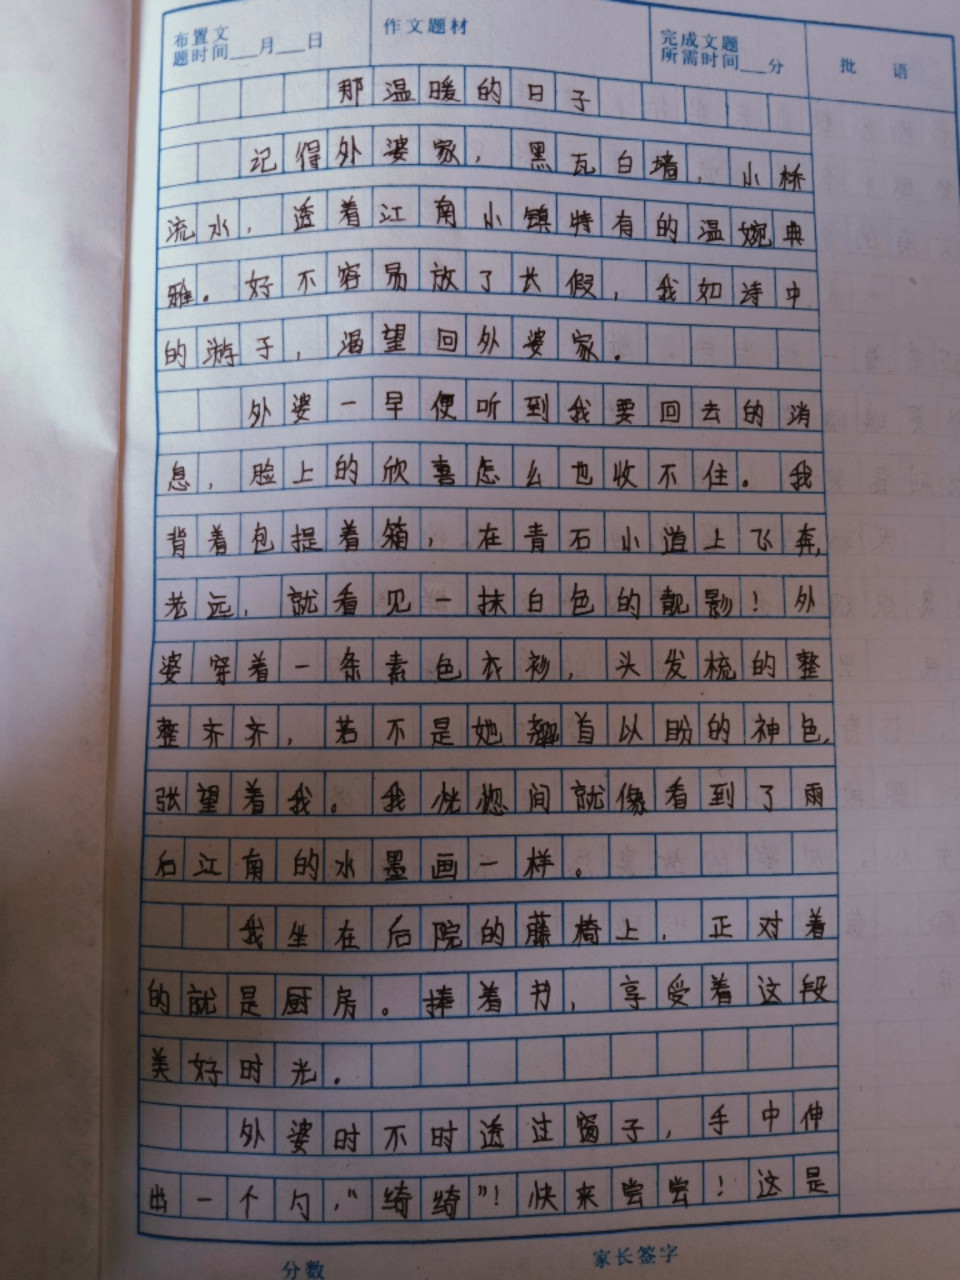 布置文
题时间___月___日
作文题材
完成文题
所需时间___分
批 语
那温暖的日子
记得外婆家，黑瓦白墙，小桥
流水，透着江南小镇特有的温婉典
雅。好不容易放了长假，我如诗中
的游子，渴望回外婆家。
外婆一早便听到我要回去的消
息，脸上的欣喜怎么也收不住。我
背着包提着箱，在青石小道上飞奔，
老远，就看见一抹白色的靓影！外
婆穿着一条素色衣衫，头发梳的整
整齐齐，若不是她翘首以盼的神色，
张望着我。我恍惚间就像看到了雨
后江南的水墨画一样。
我坐在后院的藤椅上，正对着
的就是厨房。捧着书，享受着这段
美好时光。
外婆时不时透过窗子，手中伸
出一个勺，“绮绮”！快来尝尝！这是
分数
家长签字